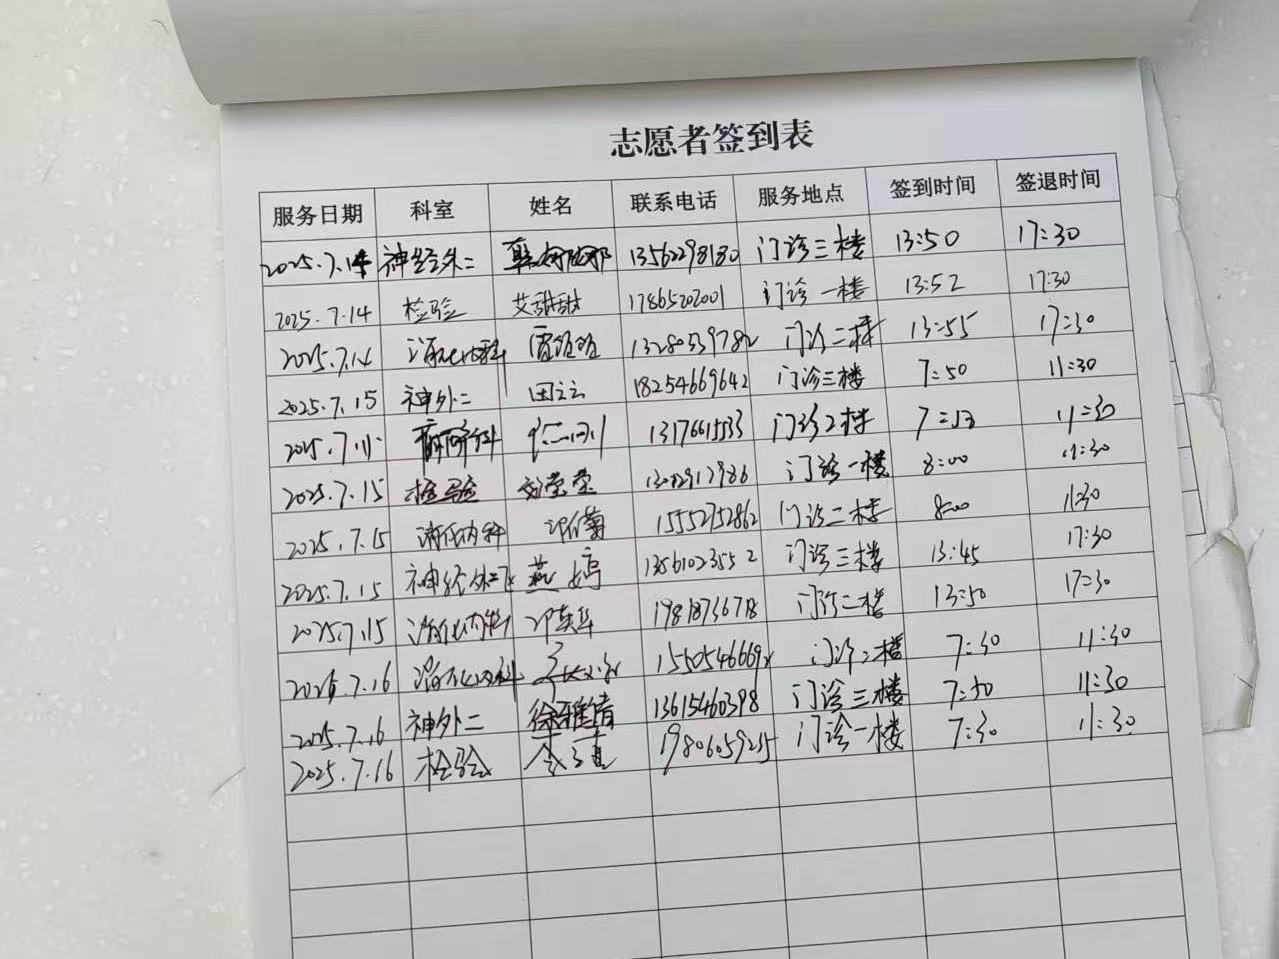 志愿者签到表
服务日期 科室 姓名 联系电话 服务地点 签到时间 签退时间
2025.7.14 神经外二 13562298180 门诊三楼 13:50 17:30
2025.7.14 检验 艾甜甜 17865202001 门诊一楼 13:52 17:30
2025.7.14 消化内科 雷姐姐 门诊二楼 13:55 17:30
2025.7.15 神外二 田云云 18254669642 门诊三楼 7:50 11:30
门诊2楼 11:30
2025.7.15 检验 刘莹莹 门诊一楼 8:00 11:30
2025.7.15 消化内科 15552752862 门诊二楼 8:00 11:30
2025.7.15 神经外二 燕嫣 13561023552 门诊三楼 13:45 17:30
2025.7.15 消化内科 邓英华 门诊二楼 13:50 17:30
2025.7.16 消化内科 门诊二楼 7:30 11:30
2025.7.16 神外二 徐雅倩 13615460398 门诊三楼 7:30 11:30
2025.7.16 检验 门诊一楼 7:30 11:30